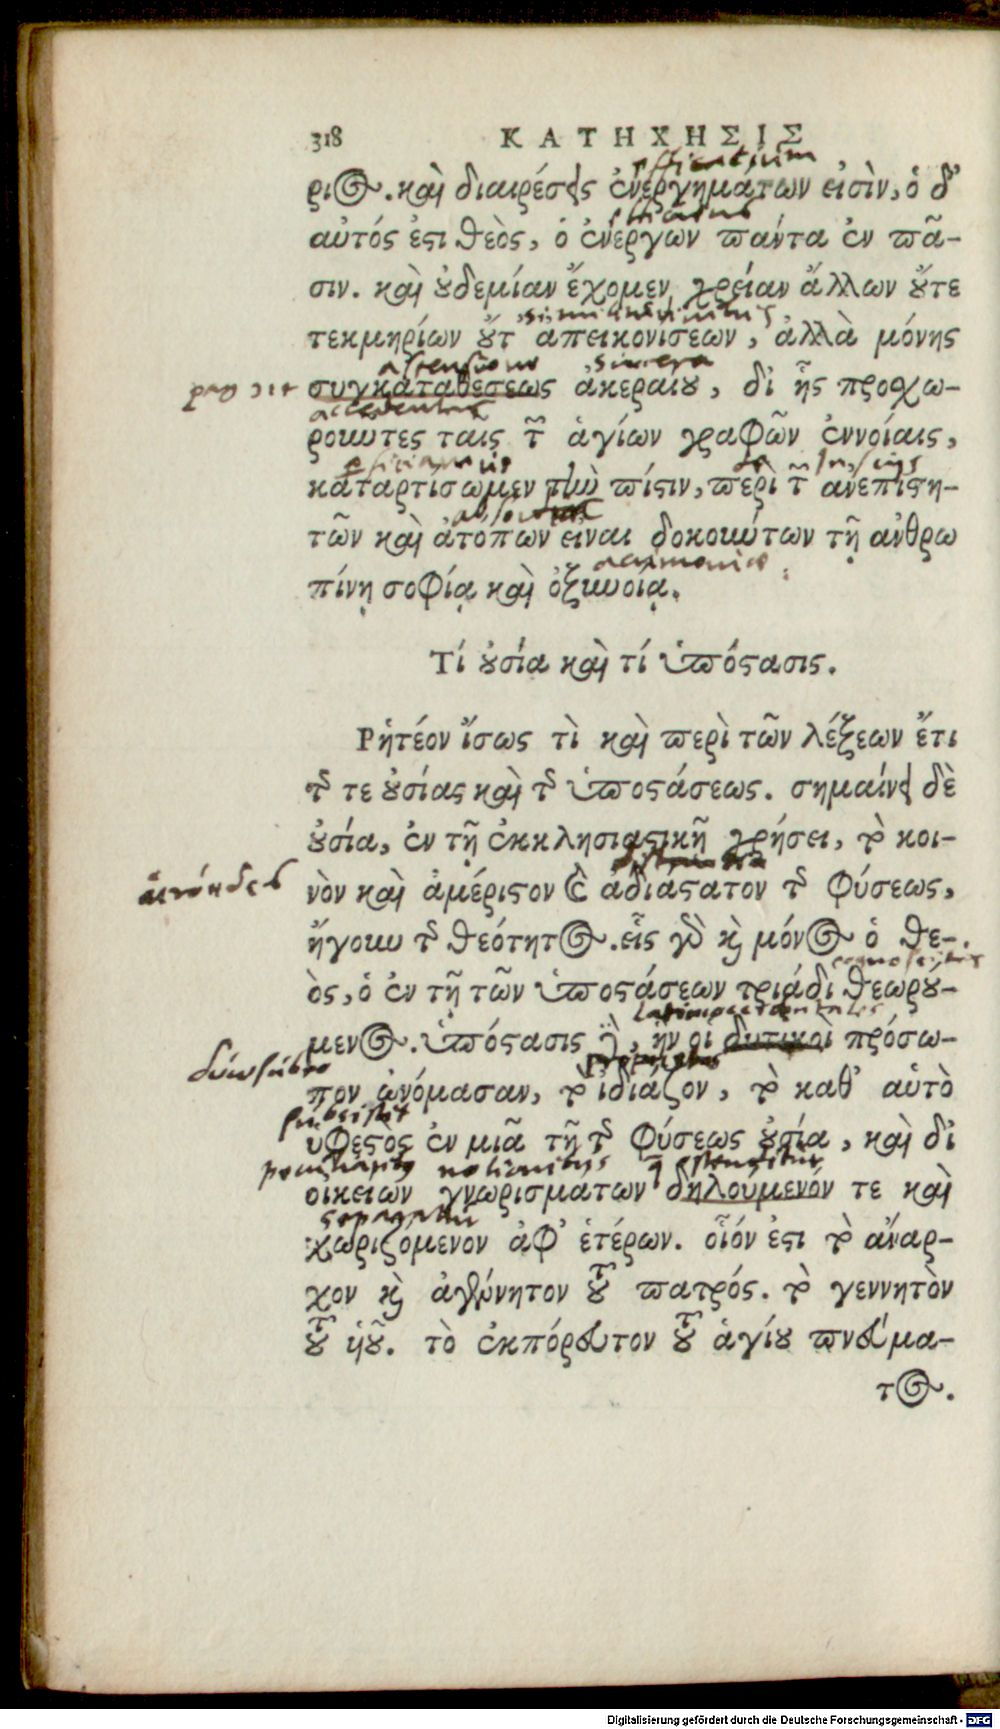 318 ΚΑΤΗΧΗΣΙΣ
efficatium
ριος. καὶ διαιρέσεις ἐνεργημάτων εἰσὶν, ὁ δ'
αὐτός ἐστι θεὸς, ὁ ἐνεργῶν πάντα ἐν πᾶ-
σιν. καὶ οὐδεμίαν ἔχομεν χρείαν ἄλλων οὔτε
τεκμηρίων οὔτ' απεικονίσεων, ἀλλὰ μόνης
assensione sincera
συγκαταθέσεως ἀκεραίου, δι' ἧς προχω-
accedentes
ροῦντες ταῖς τῶν ἁγίων γραφῶν ἐννοίαις,
καταρτίσωμεν τὴν πίστιν, περὶ τῶν ἀνεπιστη-
τῶν καὶ ἀτόπων εἶναι δοκούντων τῇ ἀνθρω
acrimonia
πίνῃ σοφίᾳ καὶ ὀξυνοίᾳ.
Τί οὐσία καὶ τί ὑπόστασις.
Ρητέον ἴσως τὶ καὶ περὶ τῶν λέξεων ἔτι
τῆς τε οὐσίας καὶ τῆς ὑποστάσεως. σημαίνει δὲ
οὐσία, ἐν τῇ ἐκκλησιαστικῇ χρήσει, τὸ κοι-
νὸν καὶ ἀμέριστον καὶ ἀδιάστατον τῆς φύσεως,
ἤγουν τῆς θεότητος. εἷς γὰρ καὶ μόνος ὁ θε-
ὸς, ὁ ἐν τῇ τῶν ὑποστάσεων τριάδι θεωρού-
μενος. ὑπόστασις δὲ, ἣν οἱ δυτικοὶ πρόσω-
πον ὠνόμασαν, τὸ ἰδιάζον, τὸ καθ' αὑτὸ
subsistit
ὑφεστὸς ἐν μιᾷ τῇ τῆς φύσεως οὐσίᾳ, καὶ δι'
notionibus q ostenditur
οἰκείων γνωρισμάτων δηλούμενόν τε καὶ
separatur
χωριζόμενον ἀφ' ἑτέρων. οἷόν ἐστι τὸ ἄναρ-
χον καὶ ἀγέννητον τοῦ πατρός. τὸ γεννητὸν
τοῦ υἱοῦ. τὸ ἐκπόρευτον τοῦ ἁγίου πνεύμα-
τος.
Digitalisierung gefördert durch die Deutsche Forschungsgemeinschaft - DFG